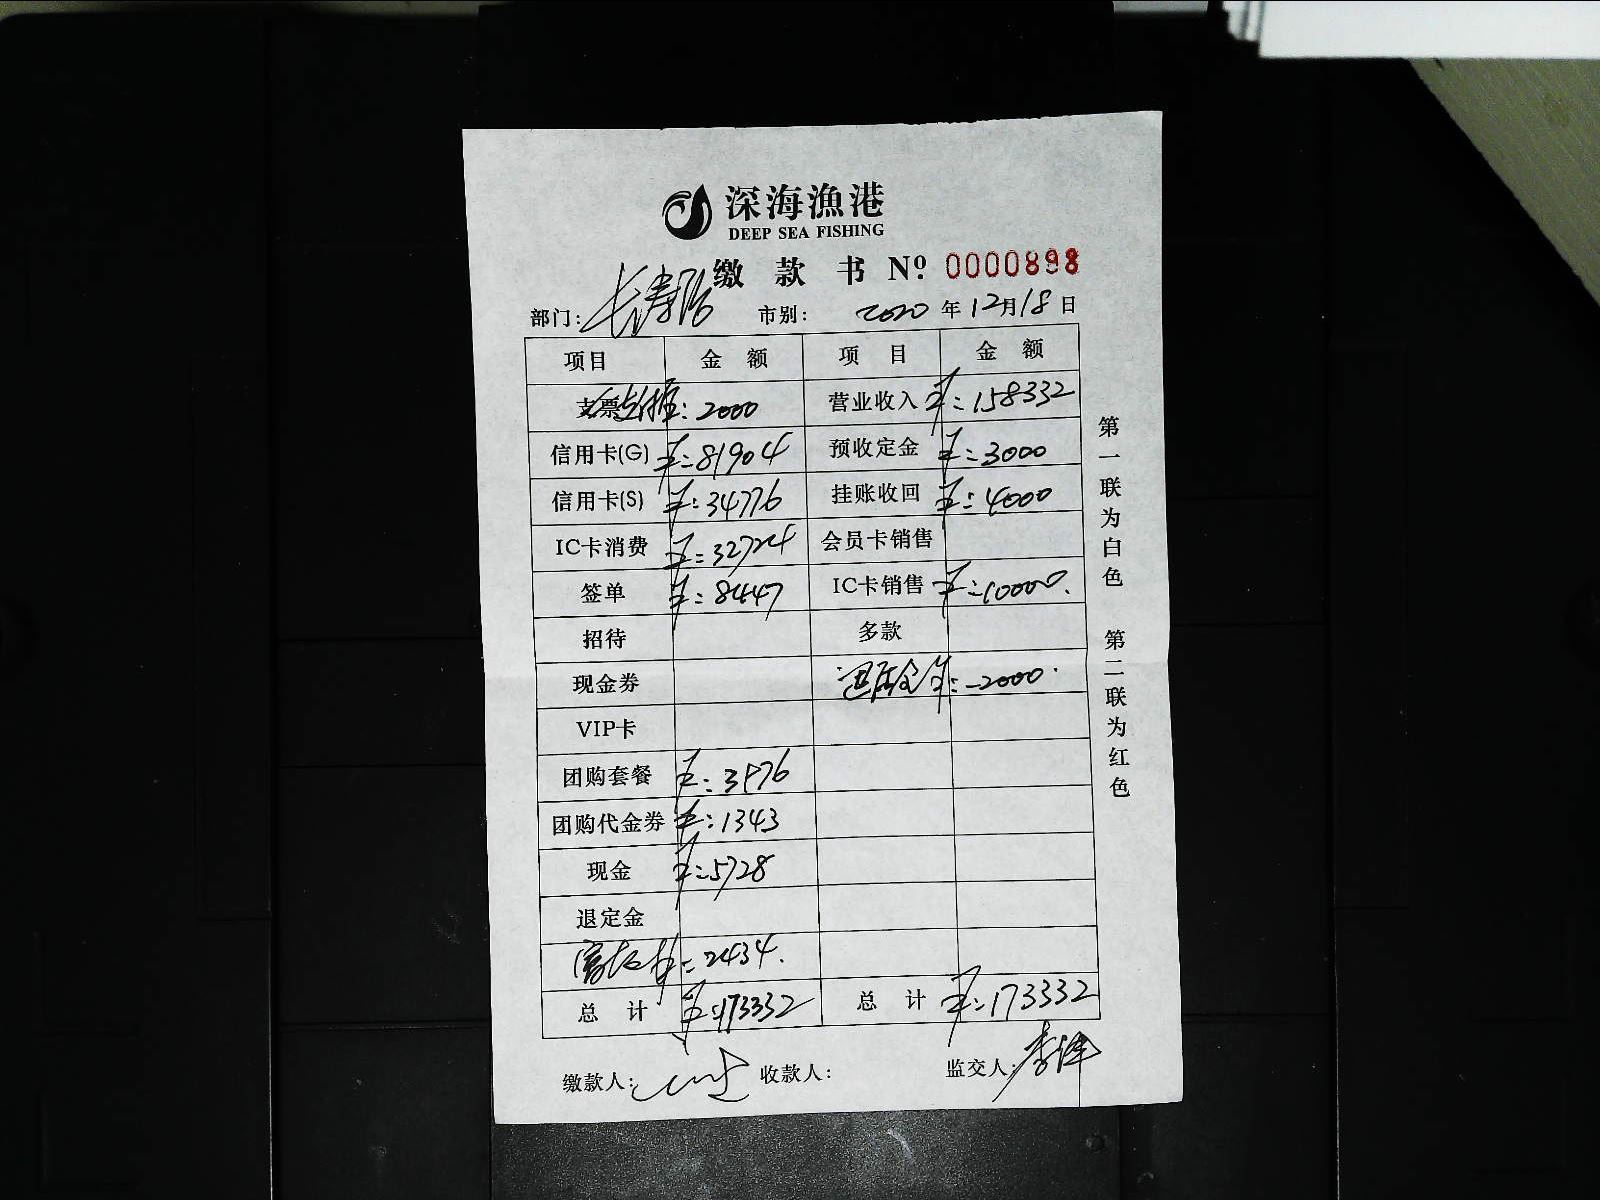 深海漁港
DEEP SEA FISHING
缴款书 Nº: 0000898
部门: 长寿路 市别: 2020年12月18日
项目 金额 项目 金额
支票 : 2000 营业收入 ¥: 158332
信用卡(G) ¥: 81904 预收定金 ¥: 3000
信用卡(S) ¥: 34776 挂账收回 ¥: 4000
IC卡消费 ¥: 32724 会员卡销售
签单 ¥: 8447 IC卡销售 ¥: 10000.
招待 多款
现金券 退定金 ¥: -2000.
VIP卡
团购套餐 ¥: 3976
团购代金券 ¥: 1343
现金 ¥: 5728
退定金
¥: 2434.
总计 ¥: 173332 总计 ¥: 173332
缴款人: 收款人: 监交人:
第一联为白色 第二联为红色